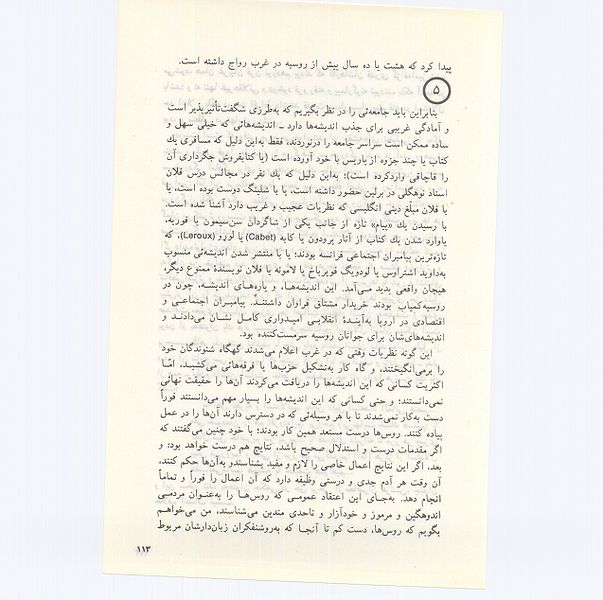 پیدا کرد که هشت یا ده سال پیش از روسیه در غرب رواج داشته است.
۵
بنابراین باید جامعه‌ئی را در نظر بگیریم که به‌طرزی شگفت تأثیرپذیر است
و آمادگی غریبی برای جذب اندیشه‌ها دارد ـ اندیشه‌هائی که خیلی سهل و
ساده ممکن است سراسر جامعه را درنوردند، فقط به‌این دلیل که مسافری یك
کتاب یا چند جزوه از پاریس با خود آورده است (یا کتابفروش جگرداری آن
را قاچاقی واردکرده است)؛ به‌این دلیل که یك نفر در مجالس درس فلان
استاد نوهگلی در برلین حضور داشته است، یا با شلینگ دوست بوده است، یا
با فلان مبلّغ دینی انگلیسی که نظریات عجیب و غریب دارد آشنا شده است.
با رسیدن یك «پیام» تازه از جانب یکی از شاگردان سن‌سیمون یا فوریه،
یاوارد شدن یك کتاب از آثار پرودون یا کابه (Cabet) یا لورو (Leroux)، که
تازه‌ترین پیامبران اجتماعی فرانسه بودند؛ یا با منتشر شدن اندیشه‌ئی منسوب
به‌داوید اشتراوس یا لودویگ فویرباخ یا لامونه یا فلان نویسندۀ ممنوع دیگر،
هیجان واقعی پدید می‌آمد. این اندیشه‌ها، و پاره‌های اندیشه، چون در
روسیه‌کمیاب بودند خریدار مشتاق فراوان داشتند. پیامبران اجتماعی و
اقتصادی در اروپا به‌آیندۀ انقلابی امیدواری کامل نشان می‌دادند و
اندیشه‌های‌شان برای جوانان روسیه سرمست‌کننده بود.
این گونه نظریات وقتی که در غرب اعلام می‌شدند گهگاه شنوندگان خود
را برمی‌انگیختند، و گاه کار به‌تشکیل حزب‌ها یا فرقه‌هائی می‌کشید، امّا
اکثریت کسانی که این اندیشه‌ها را دریافت می‌کردند آن‌ها را حقیقت نهائی
نمی‌دانستند؛ و حتی کسانی که این اندیشه‌ها را بسیار مهم می‌دانستند فوراً
دست به‌کار نمی‌شدند تا با هر وسیله‌ئی که در دسترس دارند آن‌ها را در عمل
پیاده کنند. روس‌ها درست مستعد همین کار بودند؛ با خود چنین می‌گفتند که
اگر مقدمات درست و استدلال صحیح باشد، نتایج هم درست خواهد بود؛ و
بعد، اگر این نتایج اعمال خاصی را لازم و مفید بشناسندو به‌آن‌ها حکم کنند،
آن وقت هر آدم جدی و درستی وظیفه دارد که آن اعمال را فوراً و تماماً
انجام دهد. به‌جای این اعتقاد عمومی که روس‌ها را به‌عنوان مردمی
اندوهگین و مرموز و خودآزار و تاحدی متدین می‌شناسند، من می‌خواهم
بگویم که روس‌ها، دست کم تا آنجا که به‌روشنفکران زبان‌دارشان مربوط
۱۱۳